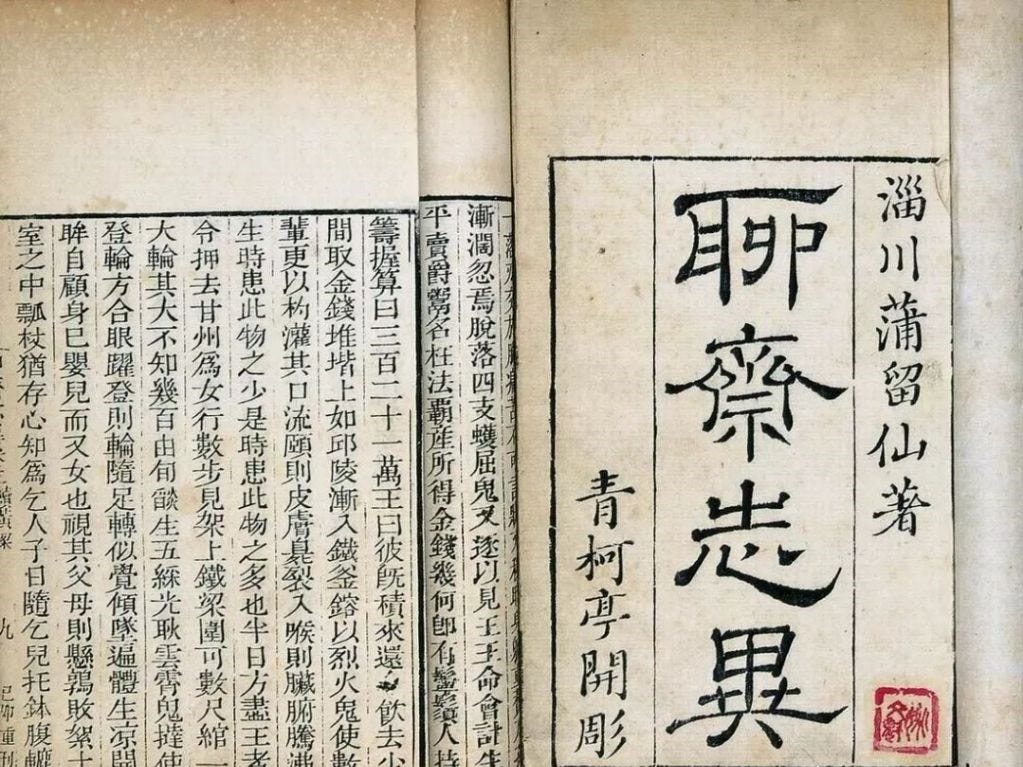 淄川蒲留仙著
聊齋志異
青柯亭開彫
漸濶忽焉脫落四支蠖屈鬼又逐以見王王命會計生
平賣爵鬻名枉法覇産所得金錢幾何卽有鬡鬚人持
籌握算曰三百二十一萬王曰彼旣積來還飮去少
間取金錢堆堦上如邱陵漸入鐵釜鎔以烈火鬼使數
輩更以杓灌其口流頤則皮膚臭裂入喉則臟腑騰沸
生時患此物之少是時患此物之多也半日方盡王者
令押去甘州爲女行數步見架上鐵梁圍可數尺綰一
大輪其大不知幾百由旬燄生五綵光耿雲霄鬼撻使
登輪方合眼躍登則輪隨足轉似覺傾墜遍體生凉開
眸自顧身已嬰兒而又女也視其父母則懸鶉敗絮
室之中瓢杖猶存心知爲乞人子日隨乞兒托鉢腹轆
九